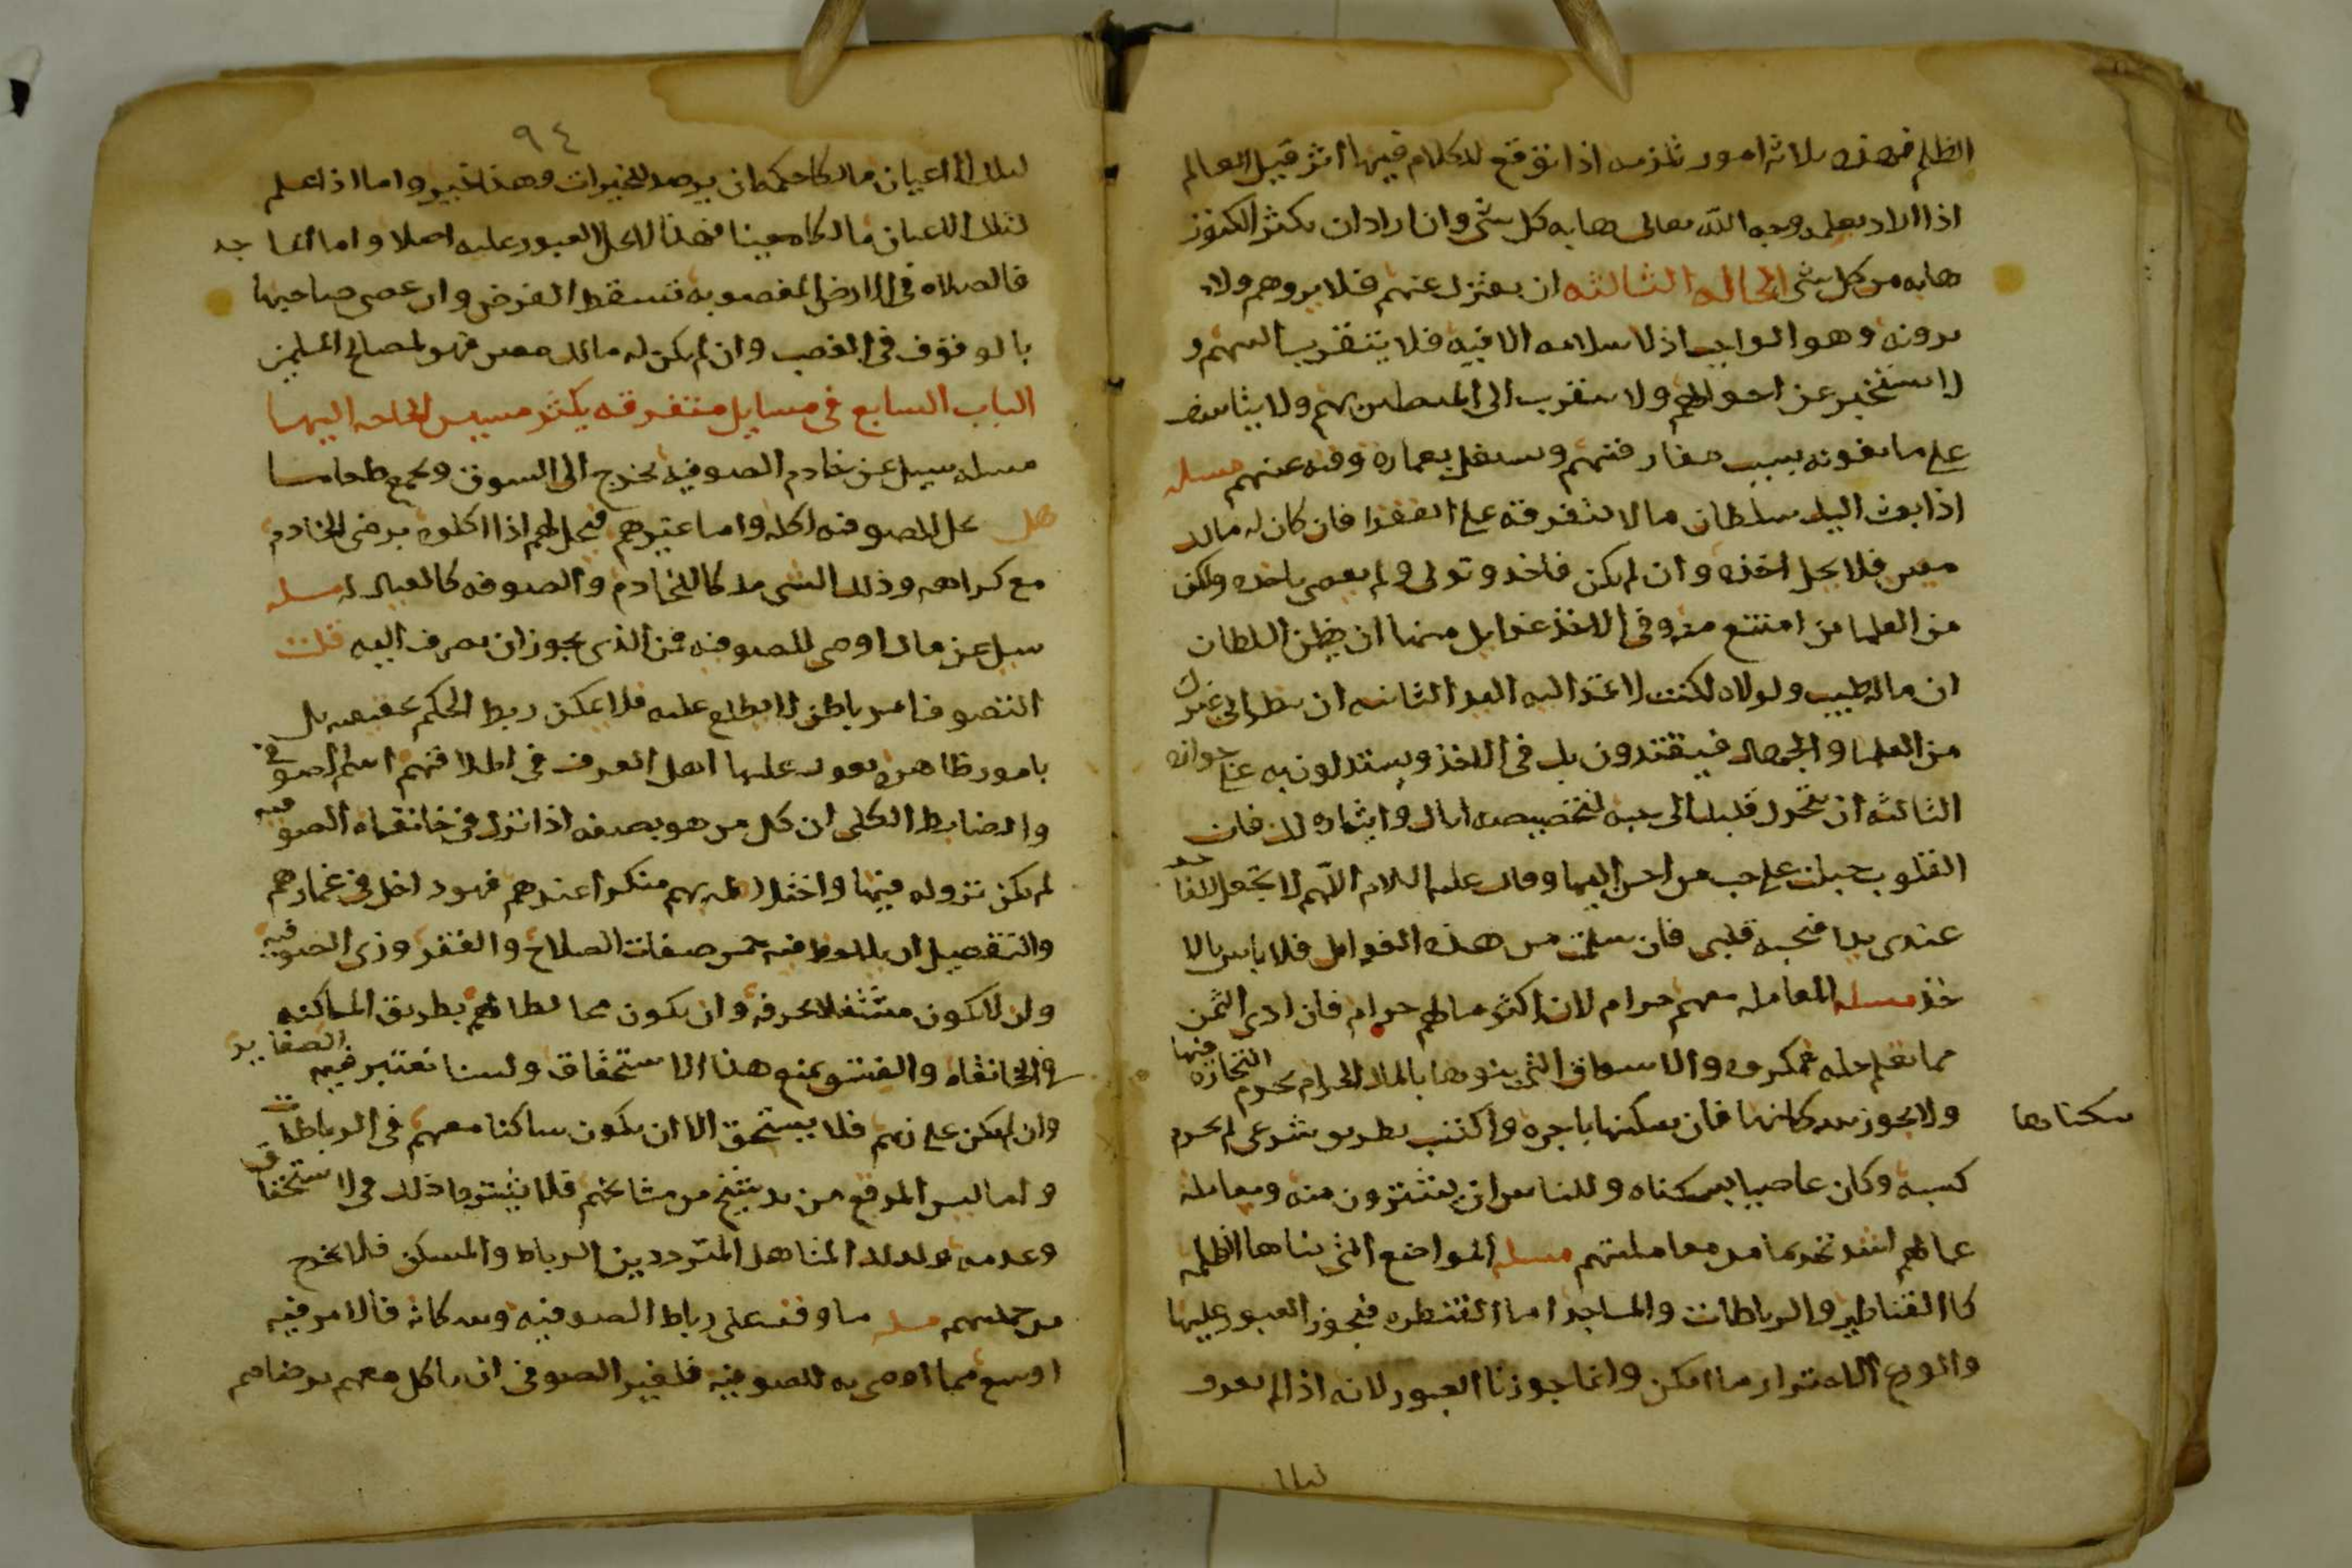 الظلم فهذه ثلاثه امور تلزمه اذا توقع للكلام فيها اثر قيل العالم
اذا اراد بعلمه وجه الله تعالى هابه كل شي وان اراد ان يكثر الكنوز
هابه من كل شي الحاله الثالثه ان يعتزل عنهم فلا يروهم ولا
يرونه وهو الواجب اذ لا سلامه الا فيه فلا يتقرب اليهم و
لا يستخبر عن احوالهم ولا يتقرب الى المتصلين بهم ولا يتاسف
على ما يفوته بسبب مفارقتهم ويشتغل بعماره وقته عنهم مسله
اذا بعث اليك سلطان مالا لتفرقه على الفقرا فان كان له مالك
معين فلا يحل اخذه وان لم يكن فاخذ وتولى ولم يعص باخذه ولكن
من العلما من امتنع منه وفى الاخذ غوايل منها ان يظن السلطان
ان ماله طيب ولولاه لكنت لا تمتد اليه اليد الثانيه ان ينظر الى غيرك
من العلما والجهال فيقتدون بك فى الاخذ ويستدلون به على جوازه
الثالثه ان يتحرك قلبك الى حبه لتخصيصه اياك وايثاره لك فان
القلوب جبلت على حب من احسن اليها وقال عليه السلام اللهم لا تجعل لفاجر
عندى يدا فيحبه قلبى فان سلمت من هذه الغوايل فلا باس بالا
خذ مسله المعامله معهم حرام لان اكثر مالهم حرام فان ادى الثمن
مما يعلم حله فمكروه والاسواق التى بنوها بالمال الحرام يحرم التجاره فيها
ولا يجوز سكانها فان سكنها باجره واكتسب بطريق شرعى لم يحرم
سكناها
كسبه وكان عاصيا بسكناه وللناس ان يشترون منه ومعامله
عمالهم اشد تحريما من معاملتهم مسله المواضع التى بناها الظلمه
كا القناطير والرباطات والمساجد اما القنطره فيجوز العبور عليها
والورع الاحتراز ما امكن وانما جوزنا العبور لانه اذا لم يعرف
لتلك
٩٤
لتلك الاعيان مالكا حكمه ان يرصد للخيرات وهذا خير واما اذا علم
لتلك الاعيان مالكا معينا فهذا لا يحل العبور عليه اصلا واما المساجد
فالصلاه فى الارض المغصوبه تسقط الفرض وان عصى صاحبها
بالوقوف فى الغصب وان لم يكن له مالك معين فهو لمصالح المسلمين
الباب السابع فى مسايل متفرقه يكثر مسيس الحاجه اليها
مسله سيل عن خادم الصوفيه يخرج الى السوق ويجمع طعاما
هل يحل للصوفيه اكله واما غيرهم فيحل لهم اذا اكلوه برضى الخادم
مع كراهه وذلك الشى ملكا للخادم والصوفه كالعيال له مسله
سيل عن مال اوصى للصوفيه فمن الذى يجوز ان يصرف اليه قلت
التصوف امر باطن لا يطلع عليه فلا يمكن ربط الحكم بحقيقته بل
بامور ظاهره يعول عليها اهل العرف فى اطلاقهم اسم الصوفى
والضابط الكلى ان كل من هو بصفه اذا نزل فى خانقاه الصوفيه
لم يكن نزوله فيها واختلاطه بهم منكرا عندهم فهو داخل فى غمارهم
والتفصيل ان يلاحظ فيه خمس صفات الصلاح والفقر وزى الصوفيه
وان لا يكون مشتغلا بحرفه وان يكون مخالطا لهم بطريق المساكنه
فى الخانقاه والفسق يمنع هذا الاستحقاق ولسنا نعتبر فيه الصغاير
وان لم يكن على زيهم فلا يستحق الا ان يكون ساكنا معهم فى الرباطات
واما لبس المرقع من يد شيخ من مشايخهم فلا يشترط ذلك فى الاستحقاق
وعدمه وكذلك المتاهل المتردد بين الرباط والمسكن فلا يخرج
من جملتهم مسله ما وقف على رباط الصوفيه وسكانه فالامر فيه
اوسع مما اوصى به للصوفيه فلغير الصوفى ان ياكل معهم برضاهم